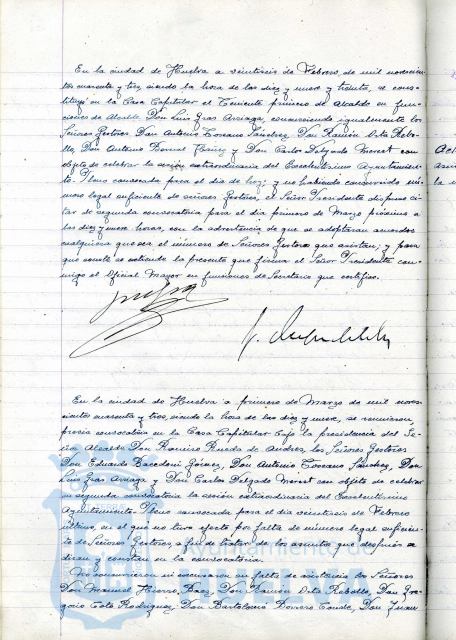 En la ciudad de Huelva a veintiseis de Febrero, de mil novecien-
tos cuarenta y tres, siendo la hora de las diez y nueve y treinta, se cons-
tituyó en la Casa Capitular el Teniente primero de Alcalde en fun-
ciones de Alcalde Don Luis Gras Arriaga, concurriendo igualmente los
Señores Gestores Don Antonio Toscano Sánchez, Don Ramón Orta Rebo-
llo, Don Antonio y Don Carlos Delgado Morset con
objeto de celebrar la sesión extraordinaria del Excelentísimo Ayuntamien-
to Pleno convocada para el dia de hoy; y no habiendo concurrido nú-
mero legal suficiente de señores Gestores, el Señor Presidente dispuso ci-
tar de segunda convocatoria para el dia primero de Marzo próximo a
las diez y nueve horas, con la advertencia de que se adoptaran acuerdos
cualquiera que sea el número de Señores Gestores que asistan; y para
que conste se extiende la presente que firma el Señor Presidente con-
migo el Oficial Mayor en funciones de Secretario que certifico.
En la ciudad de Huelva a primero de Marzo de mil nove-
cientos cuarenta y tres, siendo la hora de las diez y nueve, se reunieron
previa convocatoria en la Casa Capitular bajo la presidencia del Se-
ñor Alcalde Don Ramiro Rueda de Andres los Señores Gestores
Don Eduardo Bacedoni Gómez, Don Antonio Toscano Sánchez, Don
Luis Gras Arriaga y Don Carlos Delgado Morset con objeto de celebrar
en segunda convocatoria la sesión extraordinaria del Excelentísimo
Ayuntamiento Pleno convocada para el dia veintiseis de Febrero
último, en el que no tuvo efecto por falta de número legal suficien-
te de Señores Gestores a fin de tratar de los asuntos que después se
diran y constan en la convocatoria.
No concurrieron ni excusaron su falta de asistencia los Señores
Don Manuel Hierro Baez, Don Ramón Orta Rebollo, Don Gre-
gorio Coto Rodriguez, Don Bartolomé Conde, Don Juan
Ayuntamiento de
HUELVA